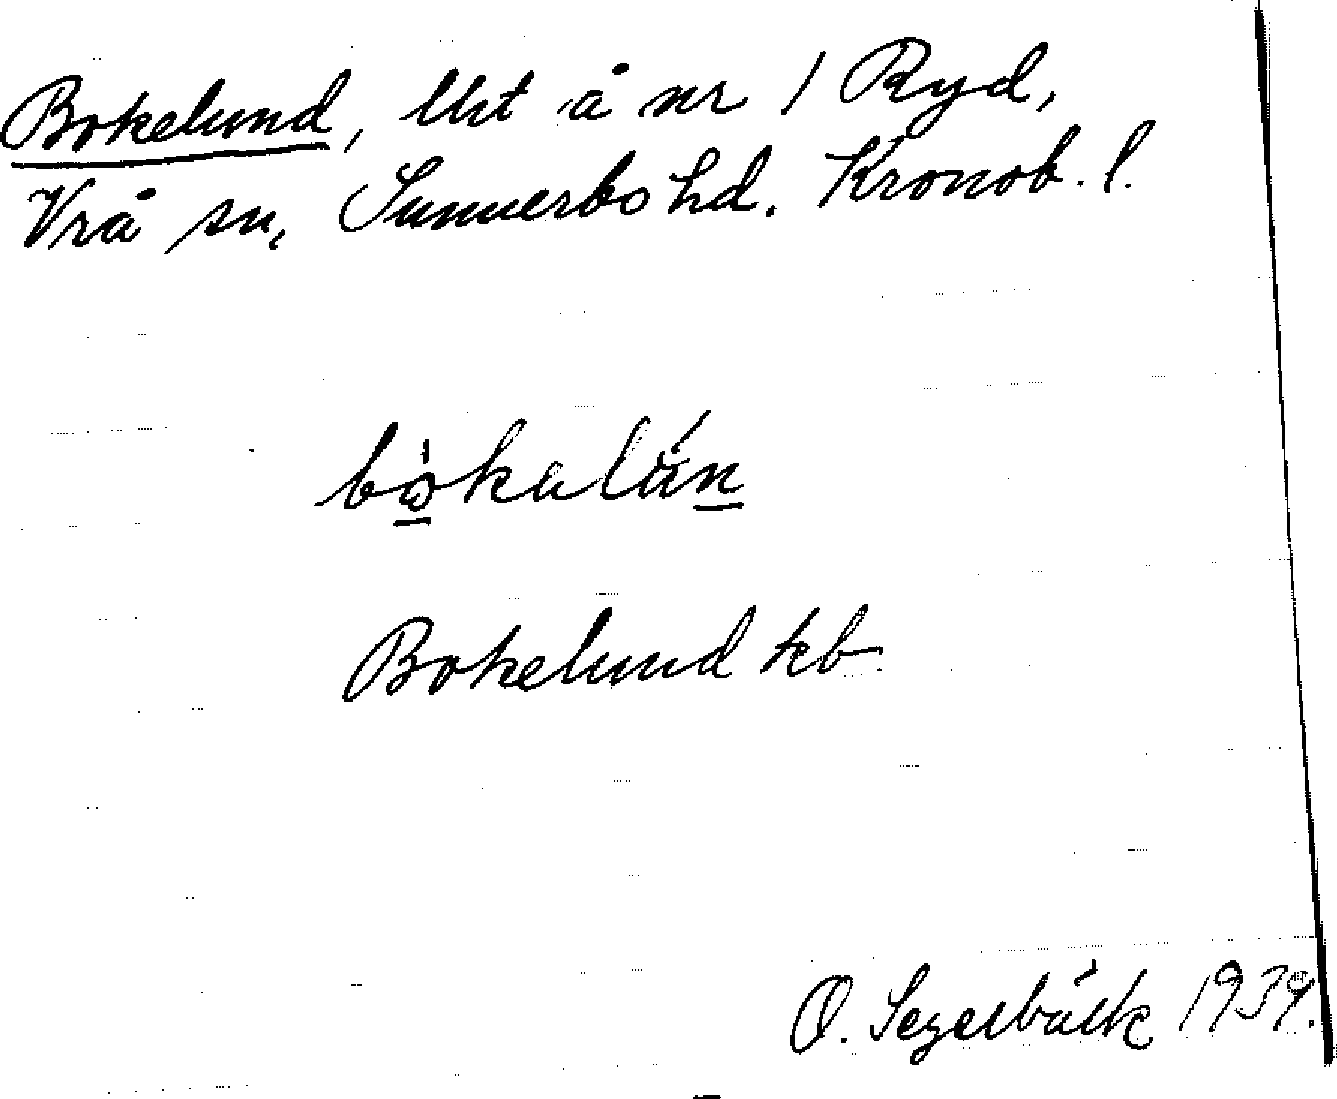 Bokelund, lht å nr 1 Ryd,
Vrå sn, Sunnerbo hd. Kronob. l.
bòkalún
Bokelund kb
O. Segerbäck 1939.